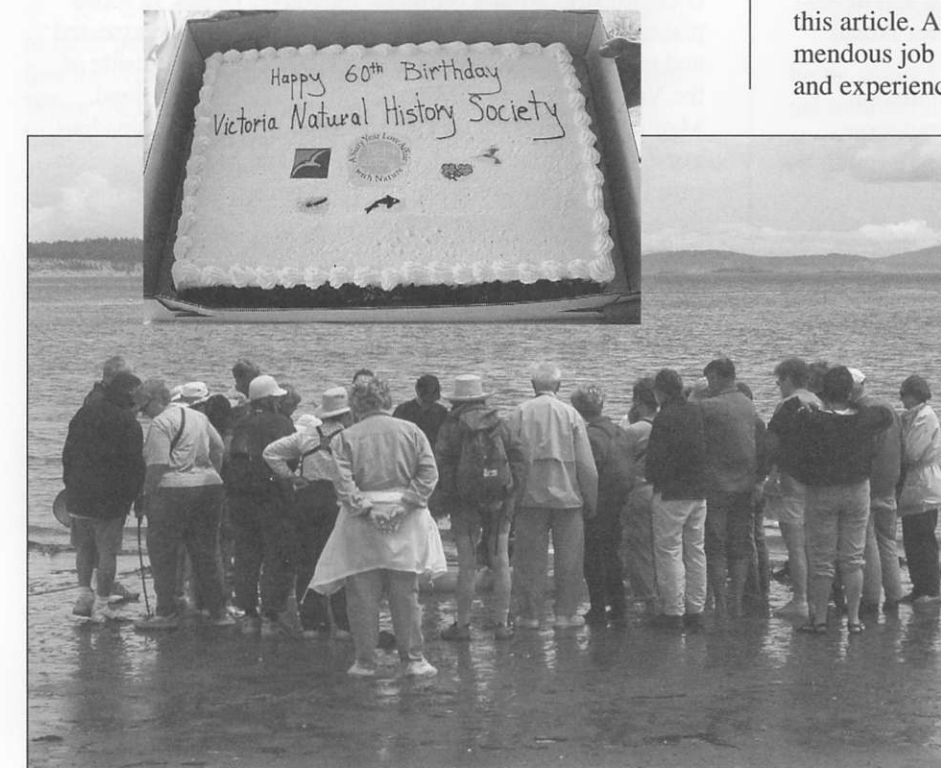 this article. A
mendous job
and experienc
Happy 60th Birthday
Victoria Natural History Society
A Sixty Year Love Affair
with Nature